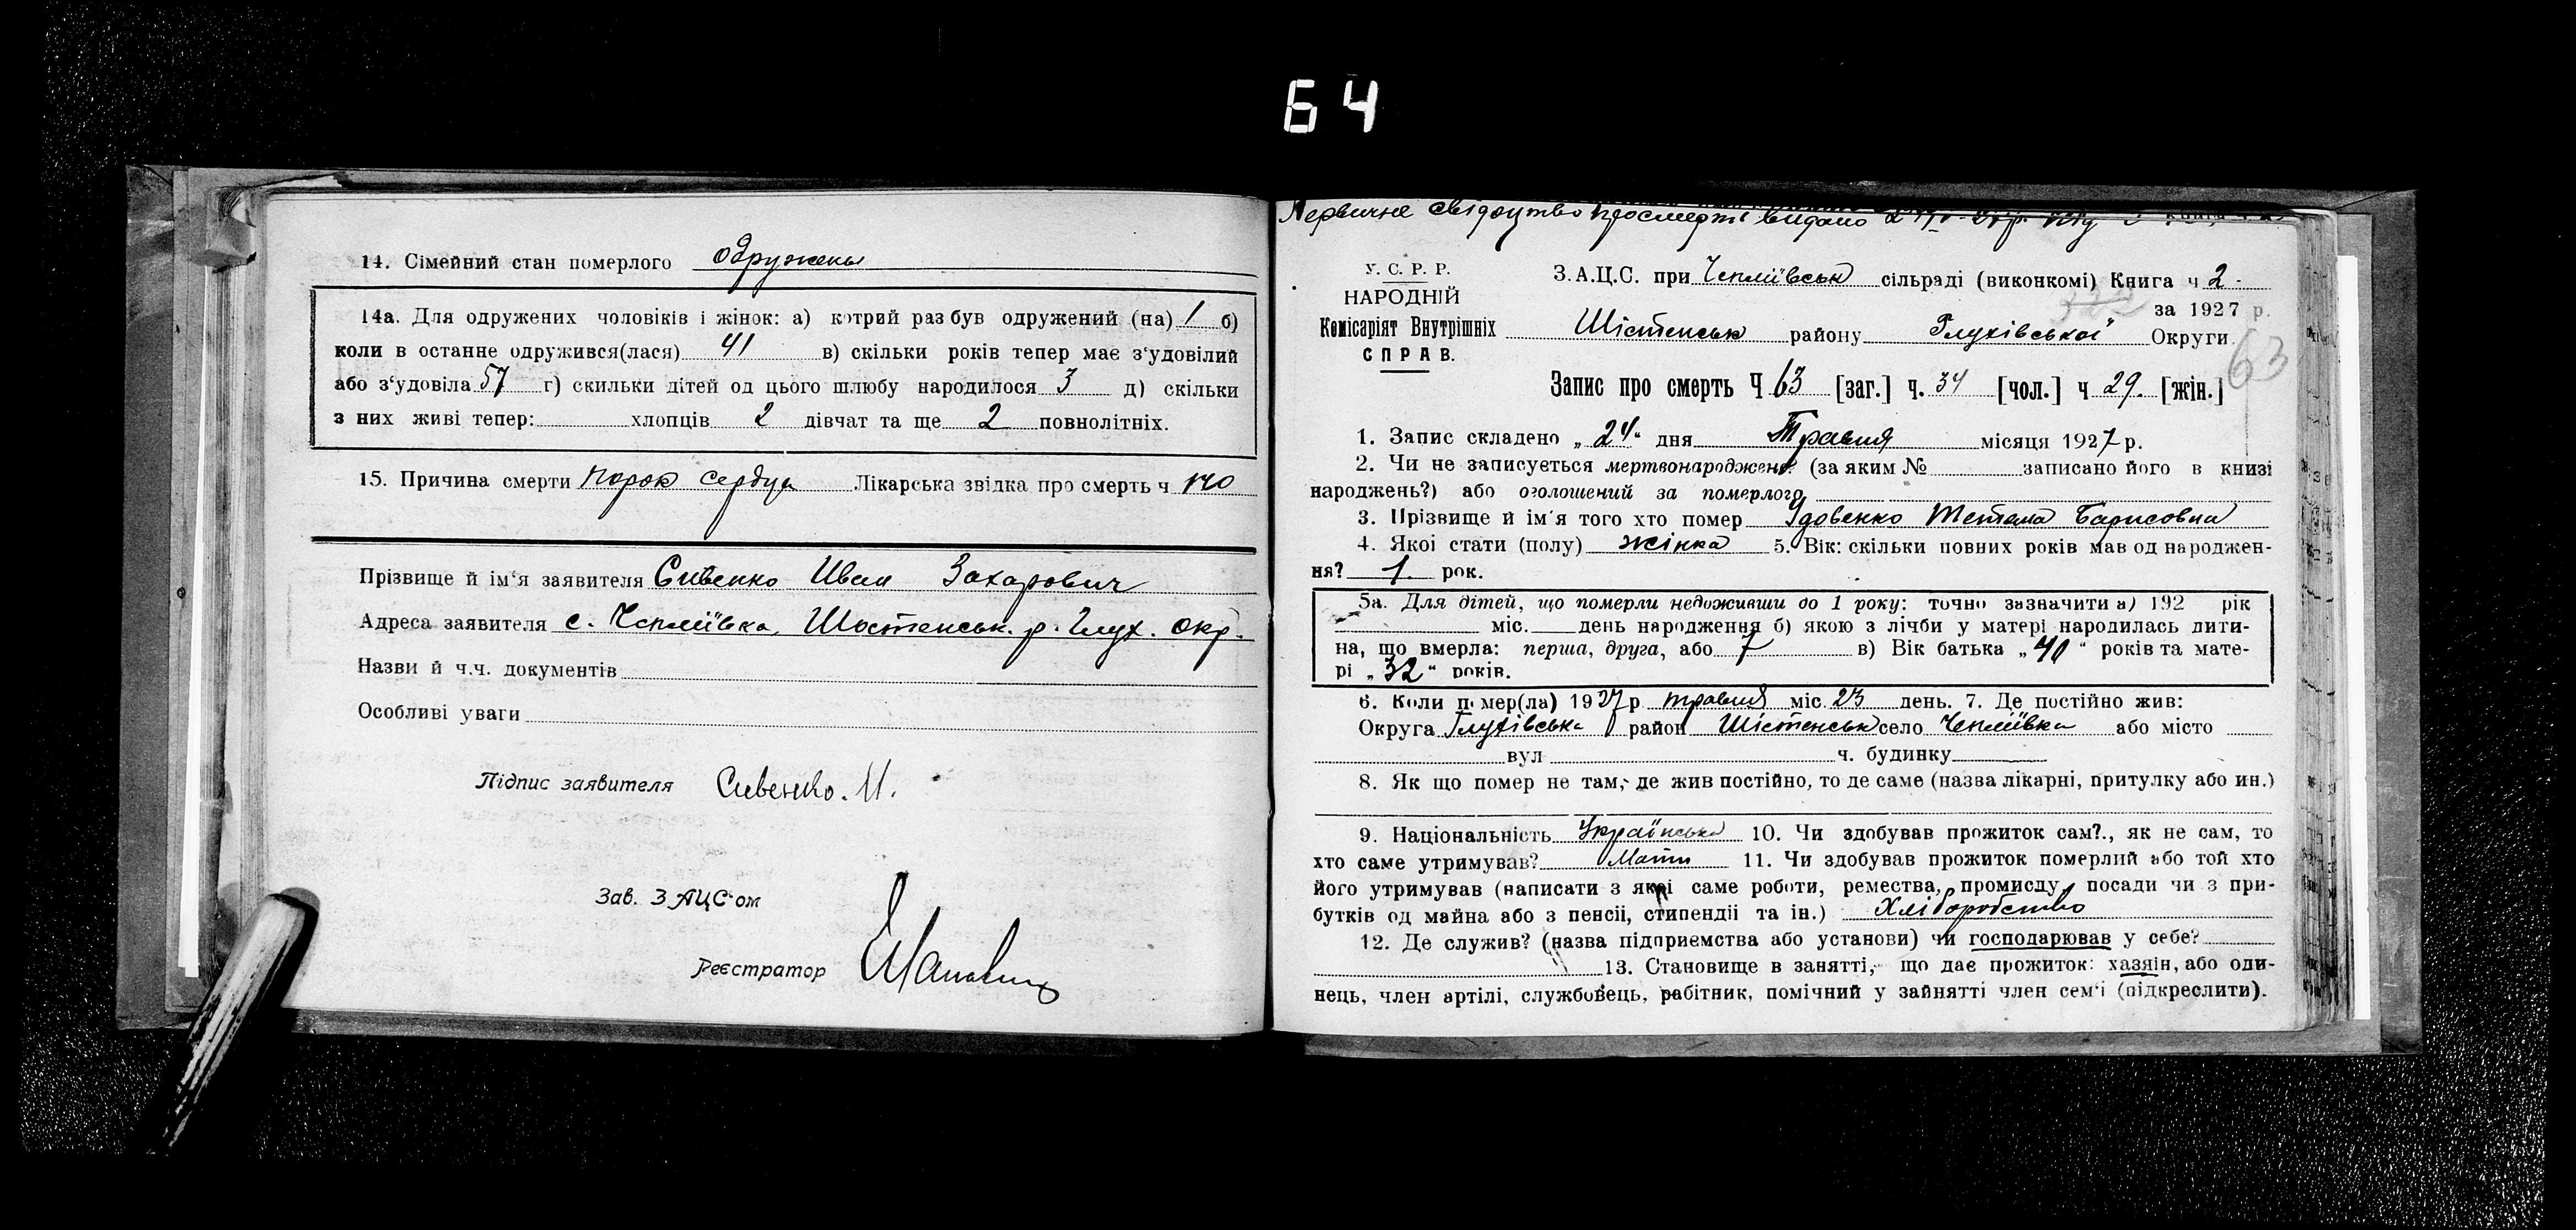 64
14. Сімейний стан померлого одружены
14а. Для одружених чоловіків і жінок: а) котрий раз був одружений (на) 1 б)
коли в останне одружився(лася) 41 в) скільки років тепер має з'удовілий
або з'удовіла 57 г) скильки дітей од цього шлюбу народилося 3 д) скільки
з них живі тепер: хлопців 2 дівчат та ще 2 повнолітніх.
15. Причина смерти порок сердца Лікарська звідка про смерть ч 170
Прізвище й ім'я заявителя Сивенко Иван Захарович
Адреса заявителя с. Чепліївка, Шостенськ. р. Глух. окр.
Назви й ч.ч. документів
Особливі уваги
Підпис заявителя Сивенко. И.
Зав. ЗАЦС-ом
Реєстратор
Первичне свідоцтво про смерть видано
У. С. Р. Р.
НАРОДНІЙ
Комісаріят Внутрішніх
СПРАВ.
З.А.Ц.С. при Чепліївськ сільраді (виконкомі) Книга ч 2
за 1927 р.
Шістенськ району Глухівської Округи
63
Запис про смерть Ч 63 [заг.] ч. 34 [чол.] ч 29. [жін.]
1. Запис складено „24" дня Травня місяця 1927 р.
2. Чи не записується мертвонароджене (за яким № записано його в книзі
народжень?) або оголошений за померлого
3. Прізвище й ім'я того хто помер Удовенко Тетяна Барисовна
4. Якоі стати (полу) жінка 5. Вік: скільки повних років мав од народжен-
ня? 1 рок.
5а. Для дітей, що померли недоживши до 1 року: точно зазначити а) 192 рік
міс. день народження б) якою з лічби у матері народилась дити-
на, що вмерла: перша, друга, або 7 в) Вік батька „40" років та мате-
рі „32" років.
6. Коли помер(ла) 1927 р травня міс. 23 день. 7. Де постійно жив:
Округа Глухівська район Шістенськ село Чепліївка або місто
вул ч. будинку
8. Як що помер не там, де жив постійно, то де саме (назва лікарні, притулку або ин.)
9. Національність Українська 10. Чи здобував прожиток сам?., як не сам, то
хто саме утримував? Мати 11. Чи здобував прожиток померлий або той хто
його утримував (написати з якоі саме роботи, ремества, промислу, посади чи з при-
бутків од майна або з пенсіі, стипендіі та ін.) Хліборобство
12. Де служив? (назва підприемства або установи) чи господарював у себе?
13. Становище в занятті, що дає прожиток: хазяін, або оди-
нець, член артілі, службовець, рабітник, помічний у зайнятті член сем'і (підкреслити).